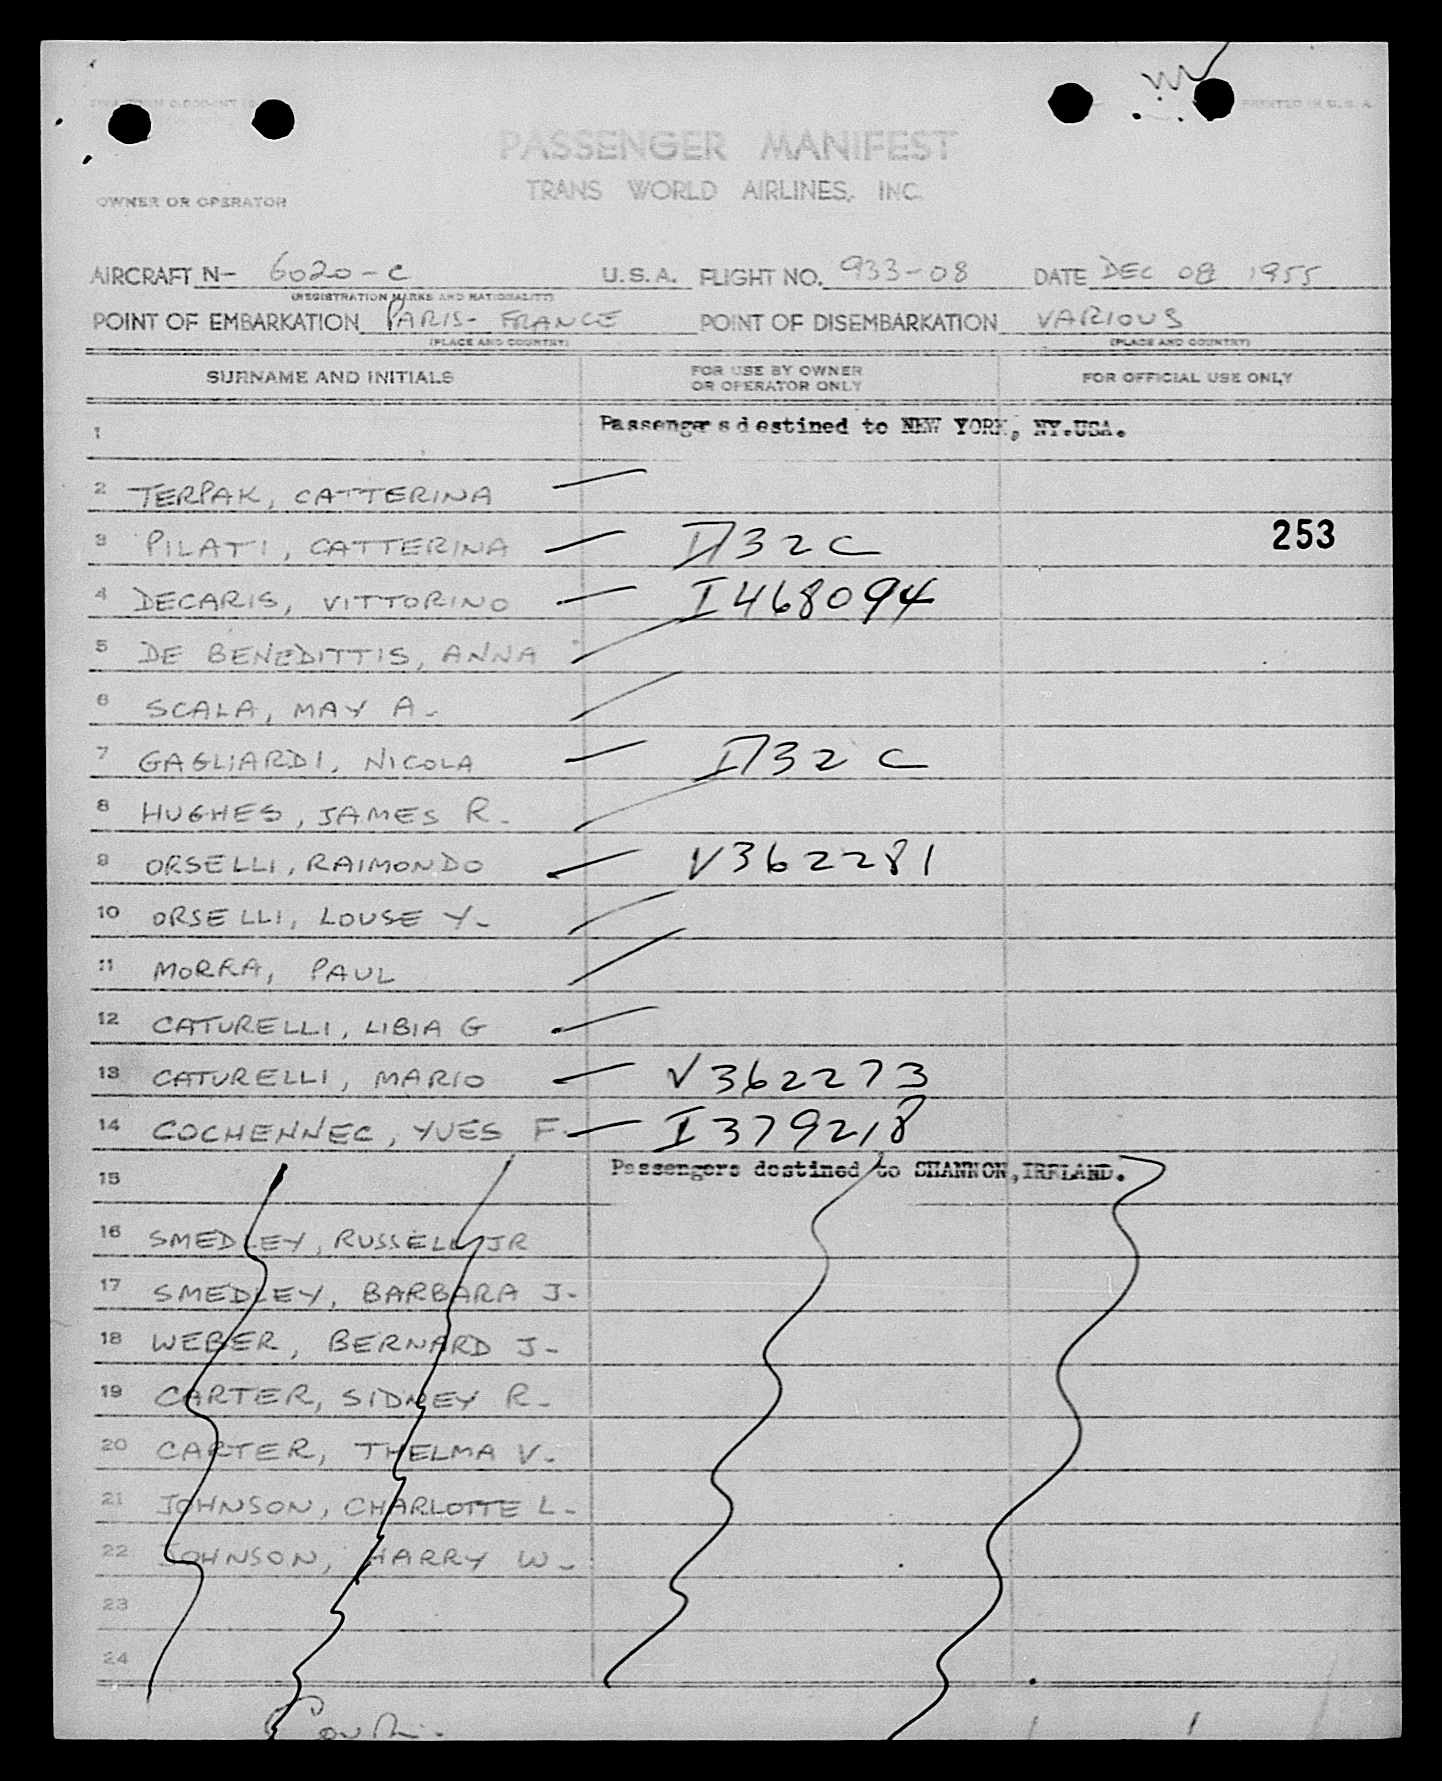 PRINTED IN U.S.A.
PASSENGER MANIFEST
TRANS WORLD AIRLINES, INC.
OWNER OR OPERATOR
AIRCRAFT N- 6020-C U.S.A. FLIGHT NO. 933-08 DATE DEC 08 1955
(REGISTRATION MARKS AND NATIONALITY)
POINT OF EMBARKATION PARIS- FRANCE POINT OF DISEMBARKATION VARIOUS
(PLACE AND COUNTRY) (PLACE AND COUNTRY)
SURNAME AND INITIALS FOR USE BY OWNER OR OPERATOR ONLY FOR OFFICIAL USE ONLY
1 Passengers destined to NEW YORK, NY.USA.
2 TERPAK, CATTERINA
3 PILATI, CATTERINA I732C 253
4 DECARIS, VITTORINO I468094
5 DE BENEDITTIS, ANNA
6 SCALA, MAY A-
7 GAGLIARDI, NICOLA I732C
8 HUGHES, JAMES R-
9 ORSELLI, RAIMONDO V362281
10 ORSELLI, LOUSE Y-
11 MORRA, PAUL
12 CATURELLI, LIBIA G
13 CATURELLI, MARIO V362273
14 COCHENNEC, YVES F- I379218
15 Passengers destined to SHANNON,IRELAND.
16 SMEDLEY, RUSSELL JR
17 SMEDLEY, BARBARA J-
18 WEBER, BERNARD J-
19 CARTER, SIDNEY R-
20 CARTER, THELMA V-
21 JOHNSON, CHARLOTTE L-
22 JOHNSON, HARRY W-
23
24